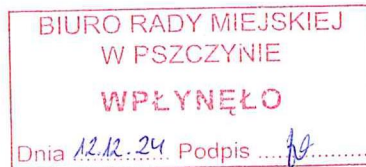 BIURO RADY MIEJSKIEJ
W PSZCZYNIE
WPŁYNĘŁO
Dnia 12.12.24 Podpis ..............